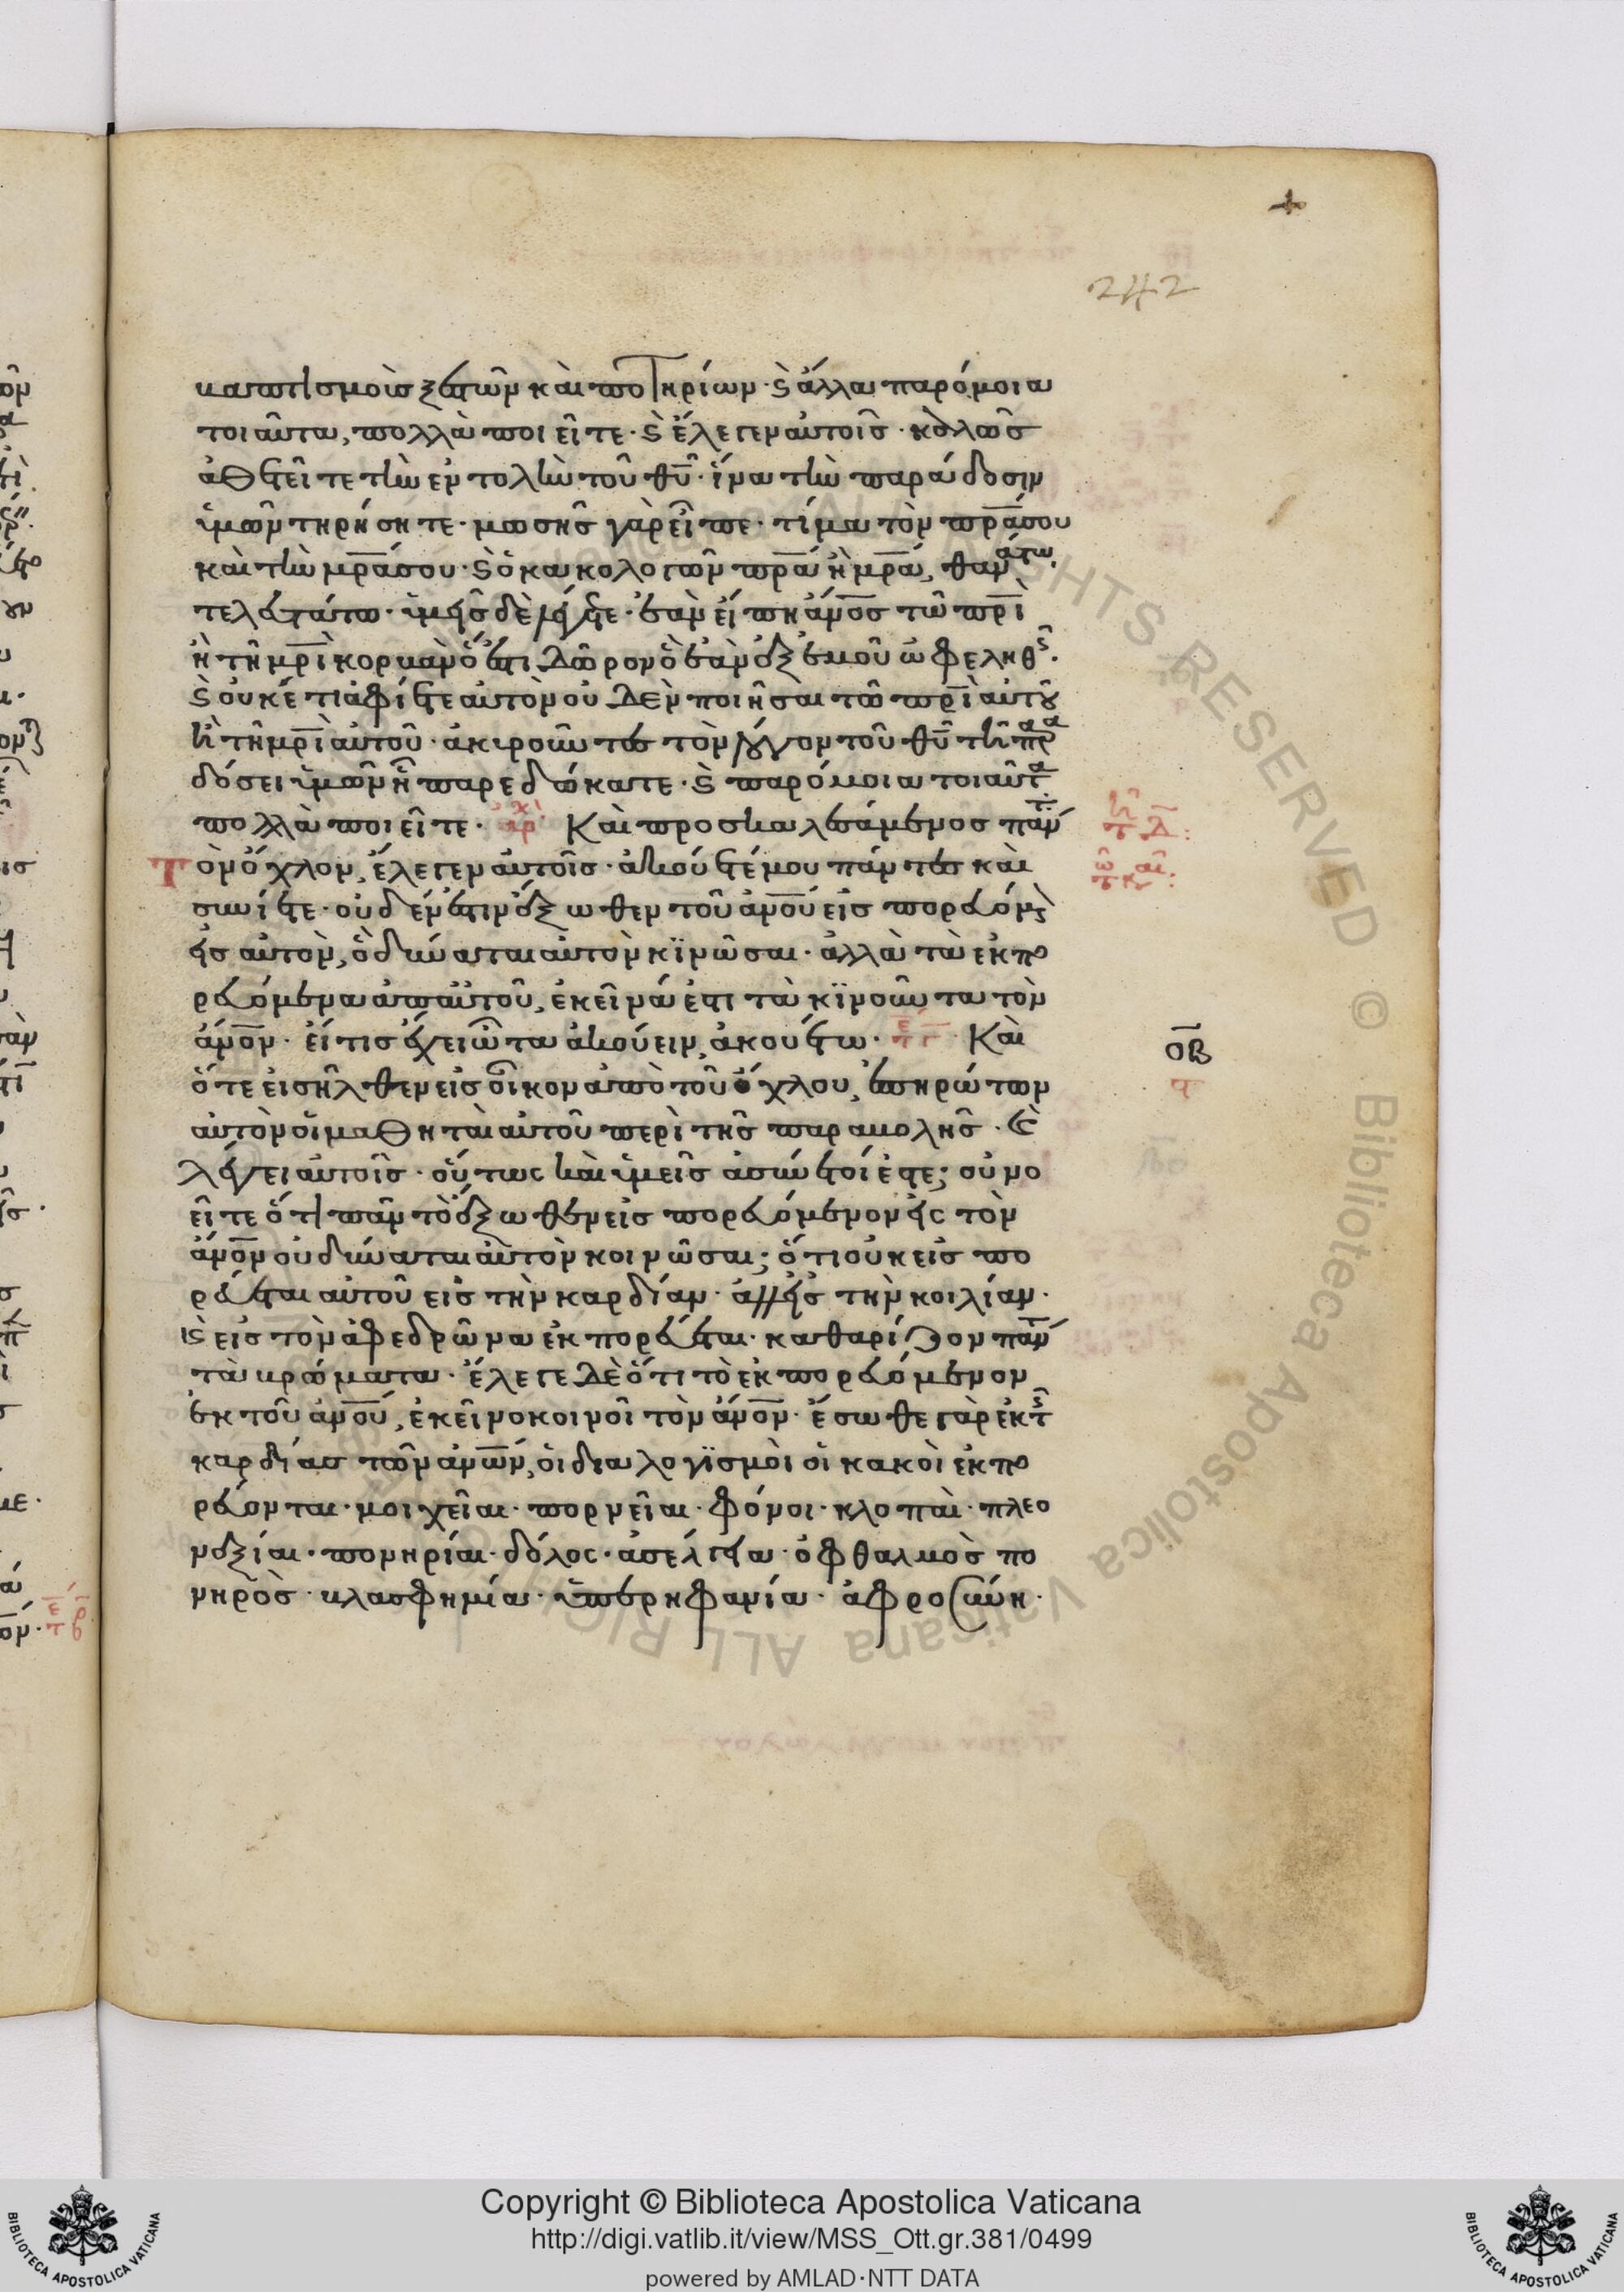 242
βαπτισμοὺς ξεστῶν καὶ ποτηρίων· ϗ ἄλλα παρόμοια
τοιαῦτα, πολλὰ ποιεῖτε· ϗ ἔλεγεν αὐτοῖς· καλῶς
ἀθετεῖτε τὴν ἐντολὴν τοῦ θυ̅· ἵνα τὴν παράδοσιν
ὑμῶν τηρήσητε· μωσῆς γὰρ εἶπε· τίμα τὸν πρ̅α σου
καὶ τὴν μρ̅α σου· ϗ ὁ κακολογῶν πρ̅α ἢ μρ̅α, θανάτω
τελευτάτω· ὑμεῖς δὲ λέγετε· ἐὰν εἴπη ἄνο̅ς τῶ πρ̅ι
ἢ τῆ μρ̅ι κορβὰν ὅ ἐστι δῶρον ὃ ἐὰν ἐξ ἐμοῦ ὠφεληθῆς·
ϗ οὐκέτι ἀφίετε αὐτὸν οὐδὲν ποιῆσαι τῶ πρ̅ι αὐτοῦ
ἢ τῆ μρ̅ι αὐτοῦ· ἀκυροῦντες τὸν λόγον τοῦ θυ̅ τῆ παρα
δόσει ὑμῶν ἧ παρεδώκατε· ϗ παρόμοια τοιαῦτα
πολλὰ ποιεῖτε· ἀρχ Καὶ προσκαλεσάμενος πάντα
Τὸν ὄχλον, ἔλεγεν αὐτοῖς· ἀκούετέ μου πάντες καὶ
συνίετε· οὐδέν ἐστιν ἔξωθεν τοῦ ἀνο̅υ εἰσπορευόμενον
εἰς αὐτὸν, ὃ δύναται αὐτὸν κϊνῶσαι· ἀλλὰ τὰ ἐκπο
ρευόμενα ἀπ' αὐτοῦ, ἐκεῖνά ἐστι τὰ κϊνοῦντα τὸν
ἄνο̅ν· εἴ τις ἔχει ὦτα ἀκούειν, ἀκουέτω· Καὶ
οβ
ὅτε εἰσῆλθεν εἰς οἶκον ἀπὸ τοῦ ὄχλου, ἐπηρώτων
αὐτὸν οἱ μαθηταὶ αὐτοῦ περὶ τῆς παραβολῆς· ϗ
λέγει αὐτοῖς· οὕτως καὶ ὑμεῖς ἀσύνετοί ἐστε; οὐ νο
εῖτε ὅτι πᾶν τὸ ἔξωθεν εἰσπορευόμενον εἰς τὸν
ἄνο̅ν οὐ δύναται αὐτὸν κοινῶσαι; ὅτι οὐκ εἰσπο
ρεύεται αὐτοῦ εἰς τὴν καρδίαν· ἀλλ' εἰς τὴν κοιλίαν·
ϗ εἰς τὸν ἀφεδρῶνα ἐκπορεύεται· καθαρίζον πάντα
τὰ βρώματα· ἔλεγε δὲ ὅτι τὸ ἐκπορευόμενον
ἐκ τοῦ ἀνο̅υ, ἐκεῖνο κοινοῖ τὸν ἄνο̅ν· ἔσωθε γὰρ ἐκ τῆς
καρδίας τῶν ἀνω̅ν, οἱ διαλογϊσμοὶ οἱ κακοὶ ἐκπο
ρεύονται· μοιχεῖαι· πορνεῖαι· φόνοι· κλοπαὶ· πλεο
νεξίαι· πονηρίαι· δόλος· ἀσέλγεια· ὀφθαλμὸς πο
νηρὸς· βλασφημία· ὑπερηφανία· ἀφροσύνη·
Copyright © Biblioteca Apostolica Vaticana
http://digi.vatlib.it/view/MSS_Ott.gr.381/0499
powered by AMLAD·NTT DATA